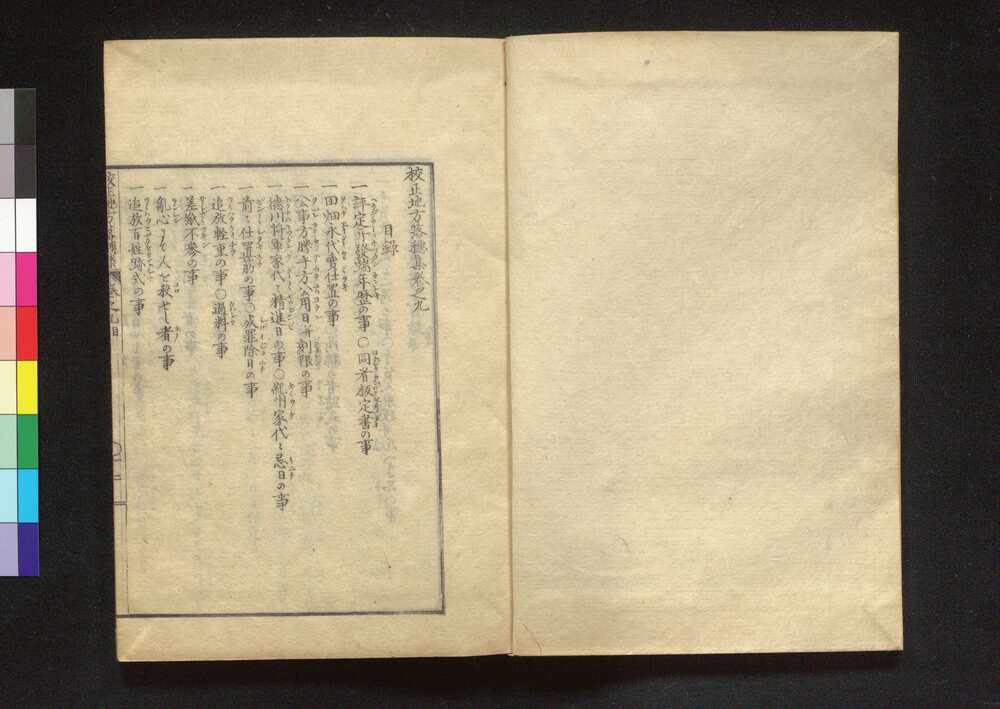 校正地方落穂集巻之九
目録
一 評定所發端年歴の事 〇同者敲定書の事
一 田畑永代賣仕置の事
一 公事方勝手方公用日并刻限の事
一 徳川将軍家代々精進日の事〇御家代々忌日の事
一 前々仕置筋の事〇成罪除日の事
一 追放軽重の事〇過料の事
一 差紙不参の事
一 亂心にて人を殺せし者の事
一 追放百姓跡式の事
校正地方落穂集 巻之九目